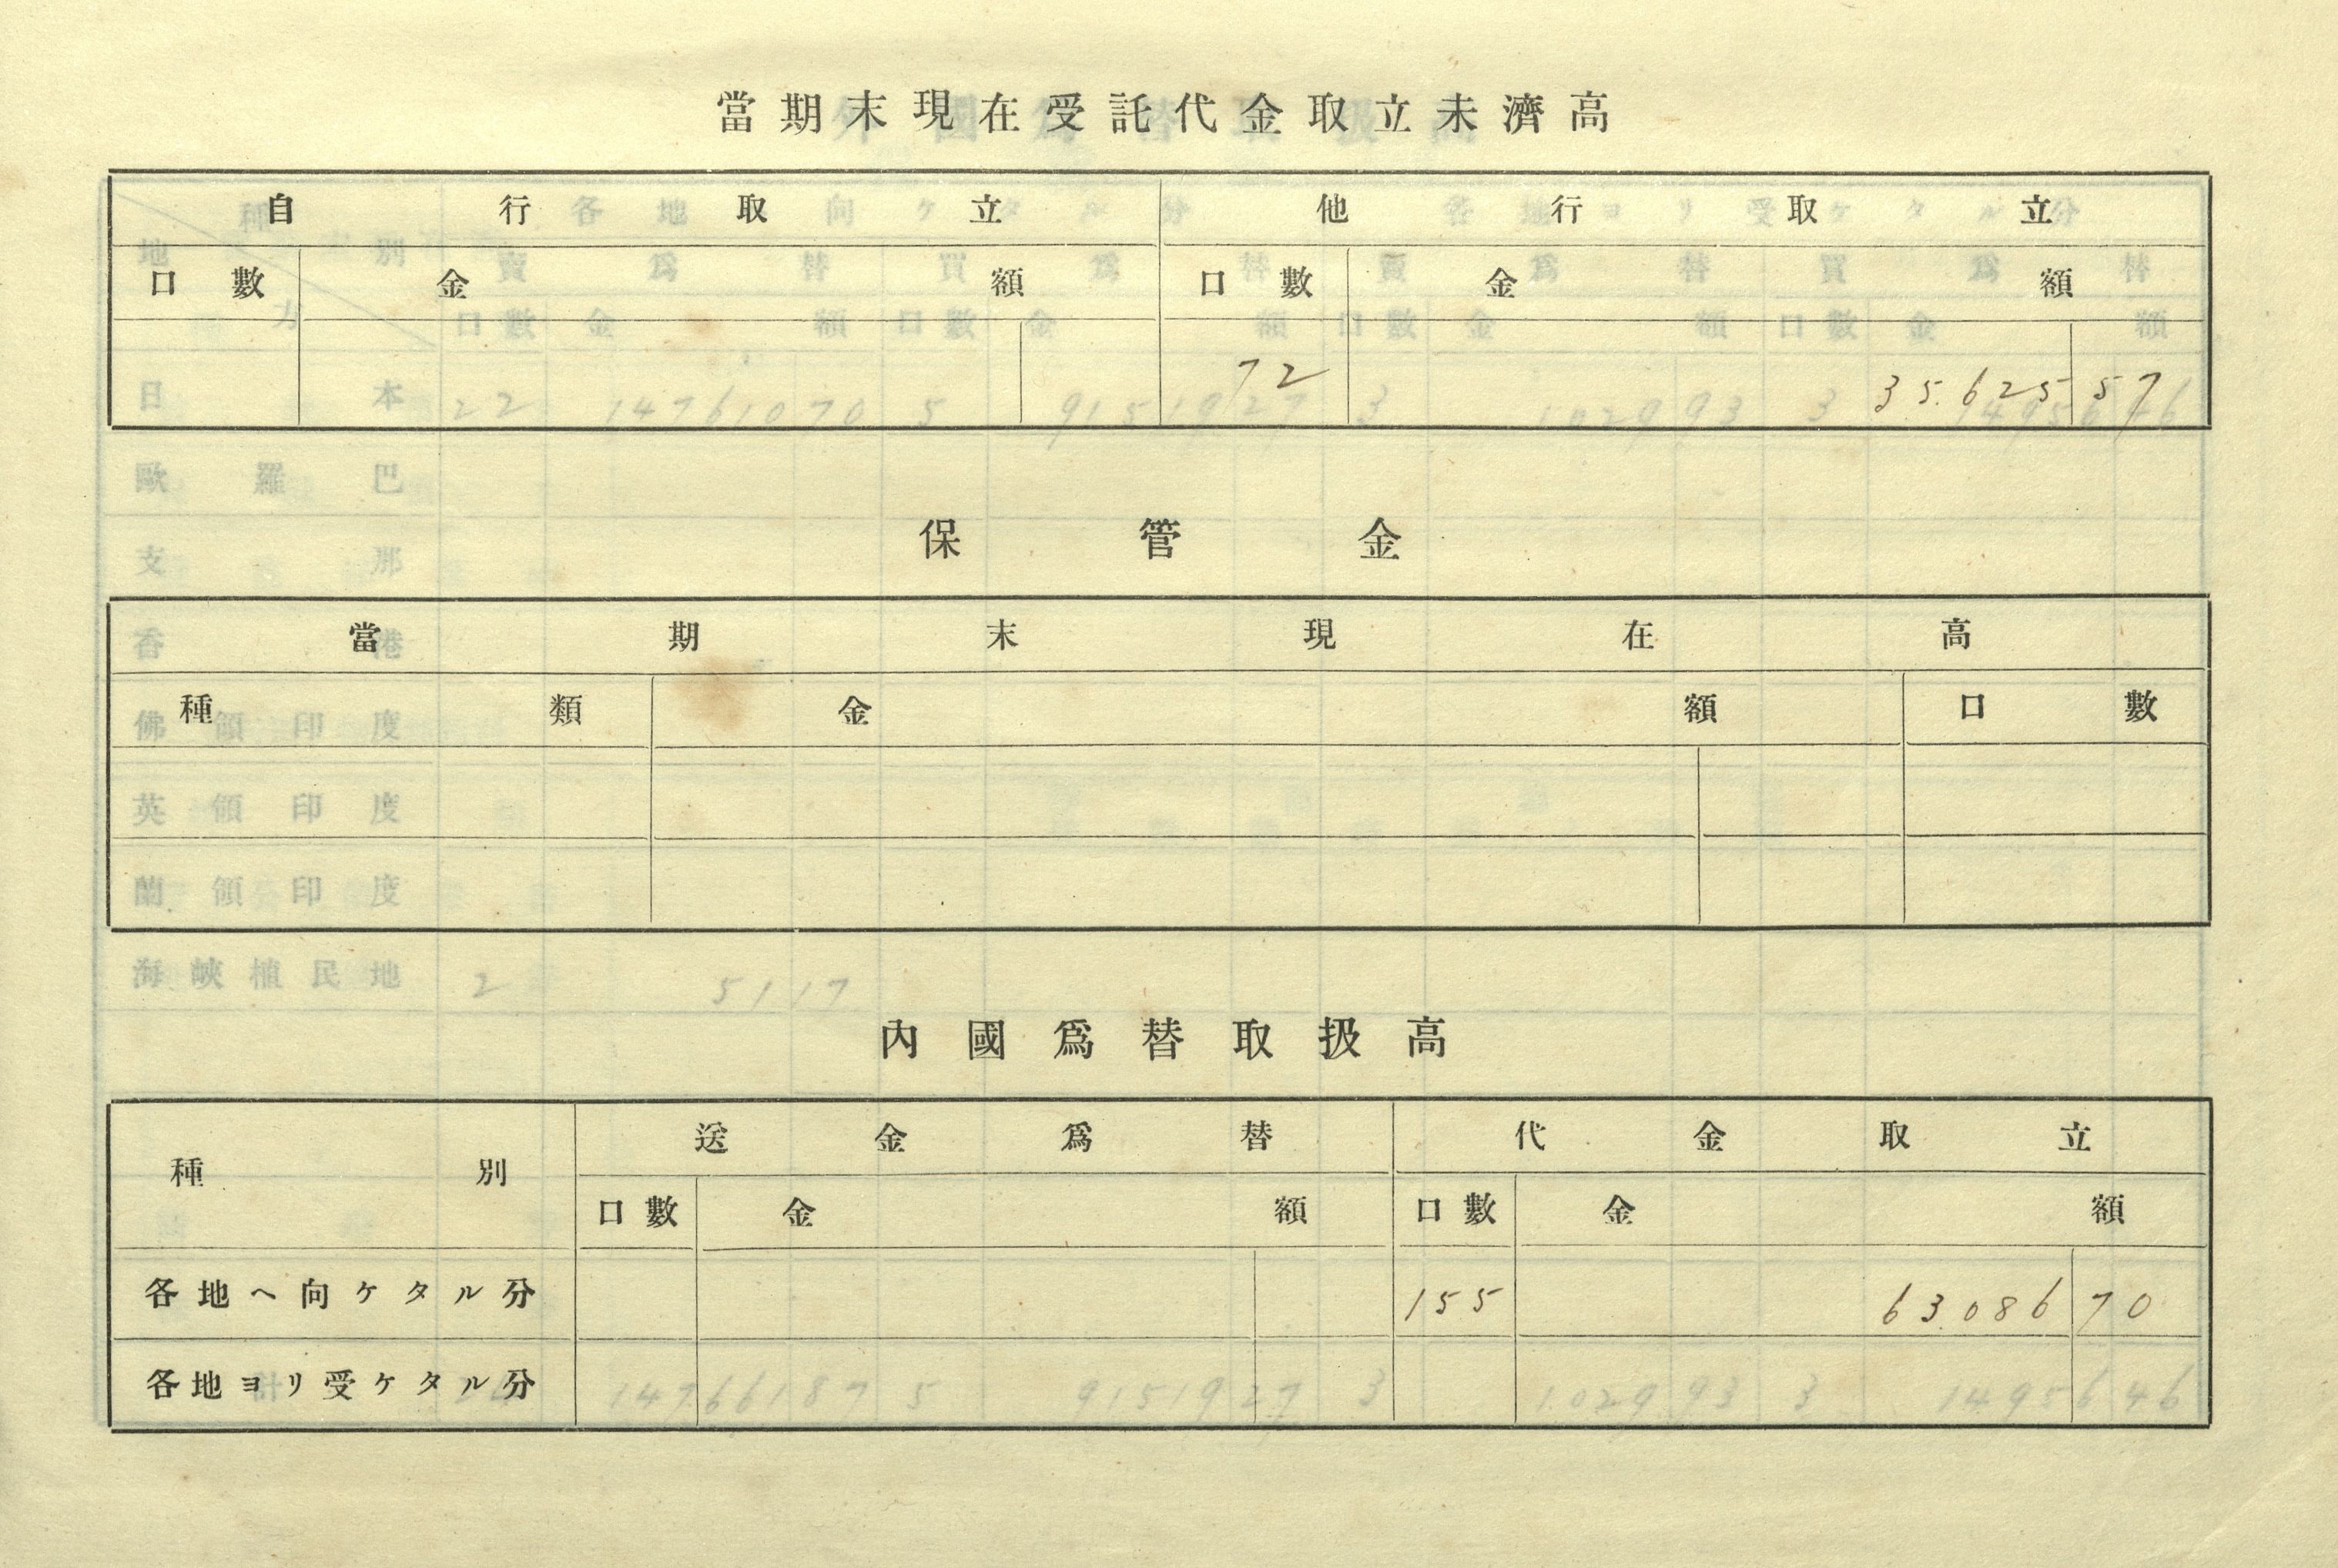 當期末現在受託代金取立未濟高
自行取立 他行取立
口數 金額 口數 金額
72 35.625 57
保管金
當期末現在高
種類 金額 口數
內國爲替取扱高
種別 送金爲替 代金取立
口數 金額 口數 金額
各地ヘ向ケタル分 155 63.086 70
各地ヨリ受ケタル分